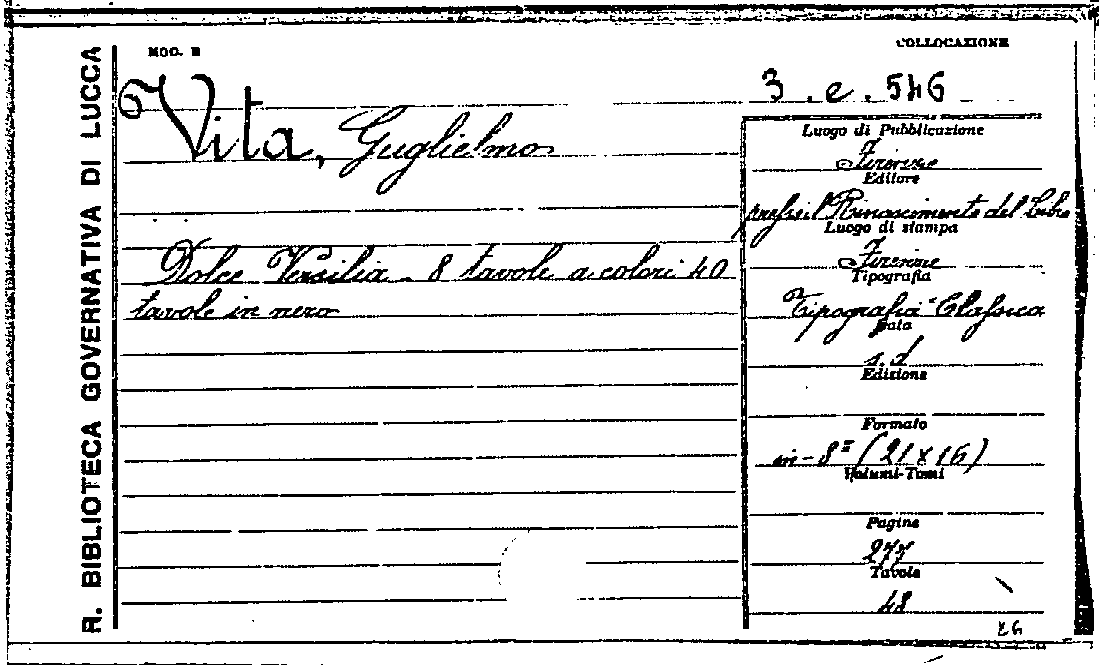 R. BIBLIOTECA GOVERNATIVA DI LUCCA
MOD. B
COLLOCAZIONE
3.e.546
Vita, Guglielmo
Dolce Versilia - 8 tavole a colori 40
tavole in nero
Luogo di Pubblicazione
Firenze
Editore
presso il Rinascimento del Libro
Luogo di stampa
Firenze
Tipografia
Tipografia "Classica
Data
s. d
Edizione
Formato
in-8= (21x16)
Volumi-Tomi
Pagine
277
Tavole
48